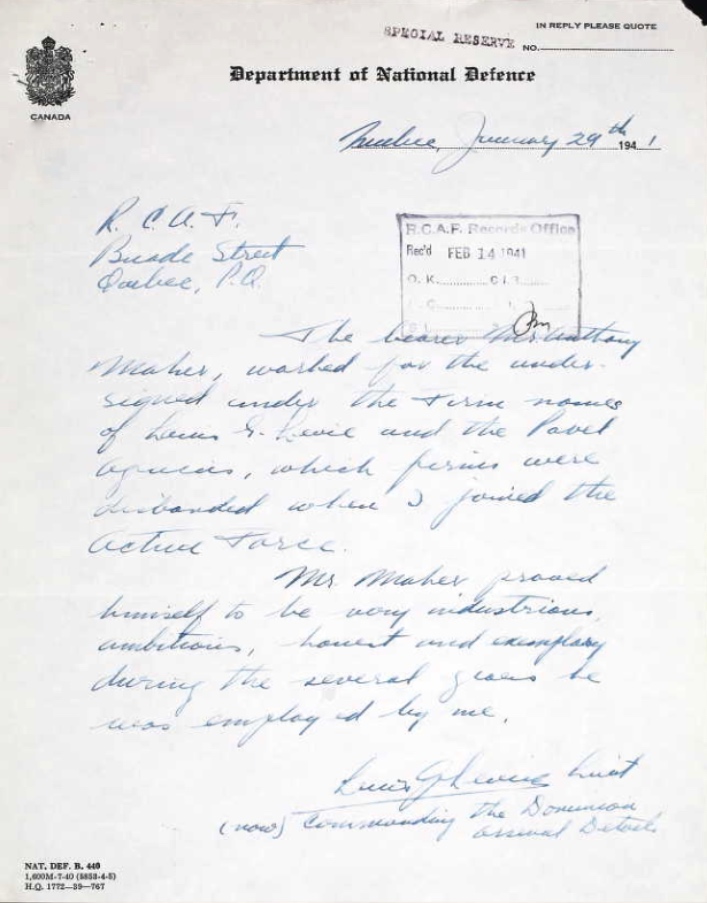 IN REPLY PLEASE QUOTE
SPECIAL RESERVE
NO.
Department of National Defence
CANADA
Quebec, January 29th 1941
R. C. A. F.
Buade Street
Quebec, P.Q.
R.C.A.F. Records Office
Rec'd FEB 14 1941
O. K.
The bearer Mr Anthony
Maher, worked for the under-
signed under the Firm names
of Louis G. Levie and the Pavel
Agencies, which firms were
disbanded when I joined the
Active Force.
Mr Maher proved
himself to be very industrious,
ambitious, honest and exemplary
during the several years he
was employed by me.
Louis G Lieut
(now) Commanding the Dominion
Arsenal
NAT. DEF. B. 440
1,600M-7-40 (5853-4-5)
H.Q. 1772-39-767